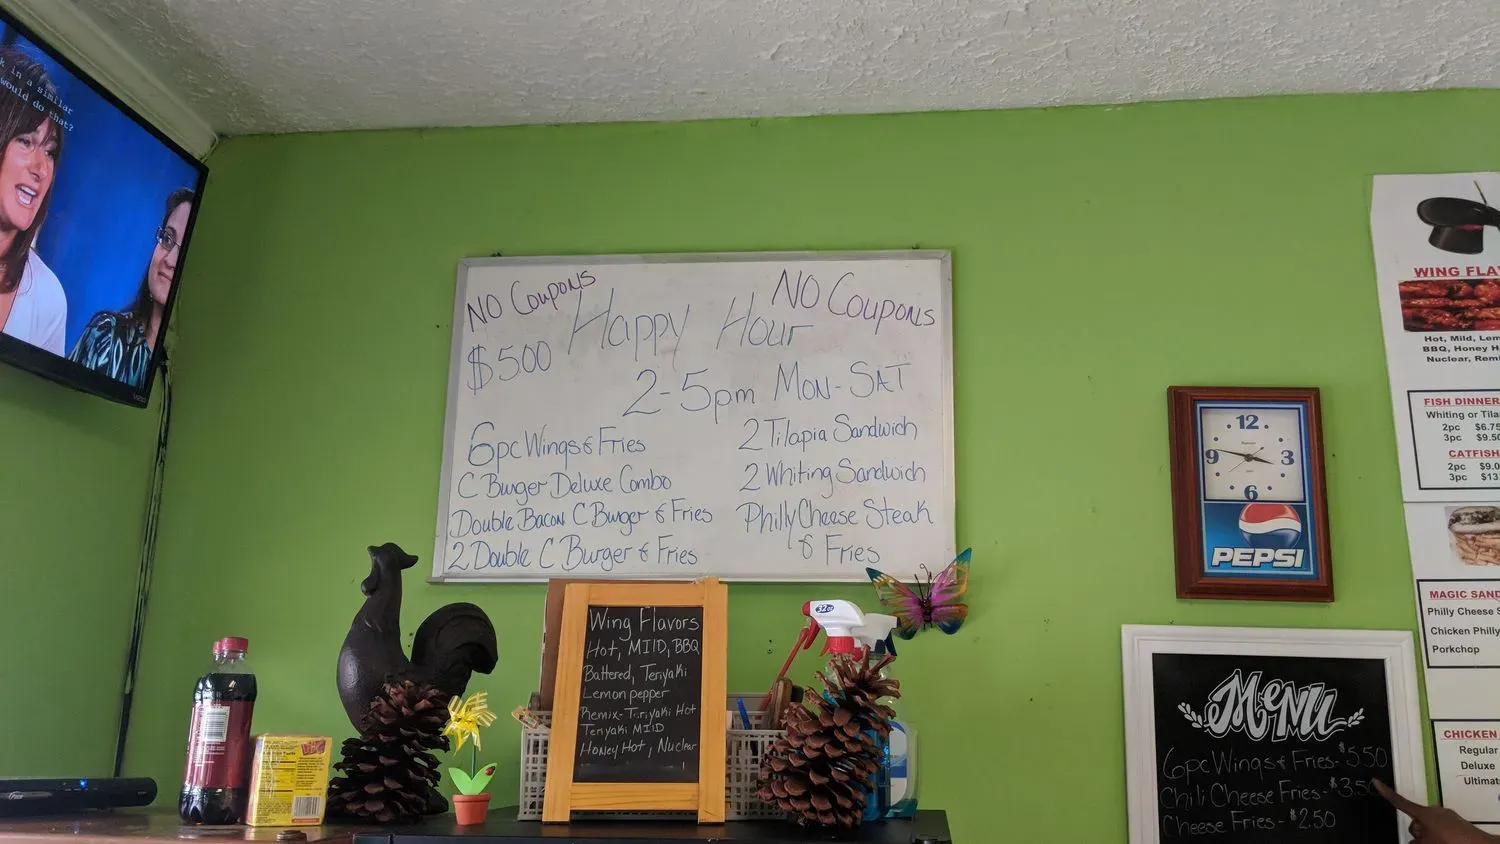 k in a similar
would do that?
VIZIO
NO Coupons
NO Coupons
Happy Hour
$5.00
2-5pm Mon-Sat
6pc Wings & Fries
C Burger Deluxe Combo
Double Bacon C Burger & Fries
2 Double C Burger & Fries
2 Tilapia Sandwich
2 Whiting Sandwich
Philly Cheese Steak
& Fries
Wing Flavors
Hot, MIlD, BBQ
Battered, Teriyaki
Lemon pepper
Remix-Tiriyaki Hot
Teriyaki MIlD
Honey Hot, Nuclear
32oz
12
9
3
6
PEPSI
Menu
6pc Wings & Fries-$5.50
Chili Cheese Fries-$3.50
Cheese Fries-$2.50
WING FLA
Hot, Mild, Lem
BBQ, Honey H
Nuclear, Remi
FISH DINNER
Whiting or Tila
2pc $6.75
3pc $9.50
CATFISH
2pc $9.0
3pc $13
MAGIC SAND
Philly Cheese S
Chicken Philly
Porkchop
CHICKEN
Regular
Deluxe
Ultimat